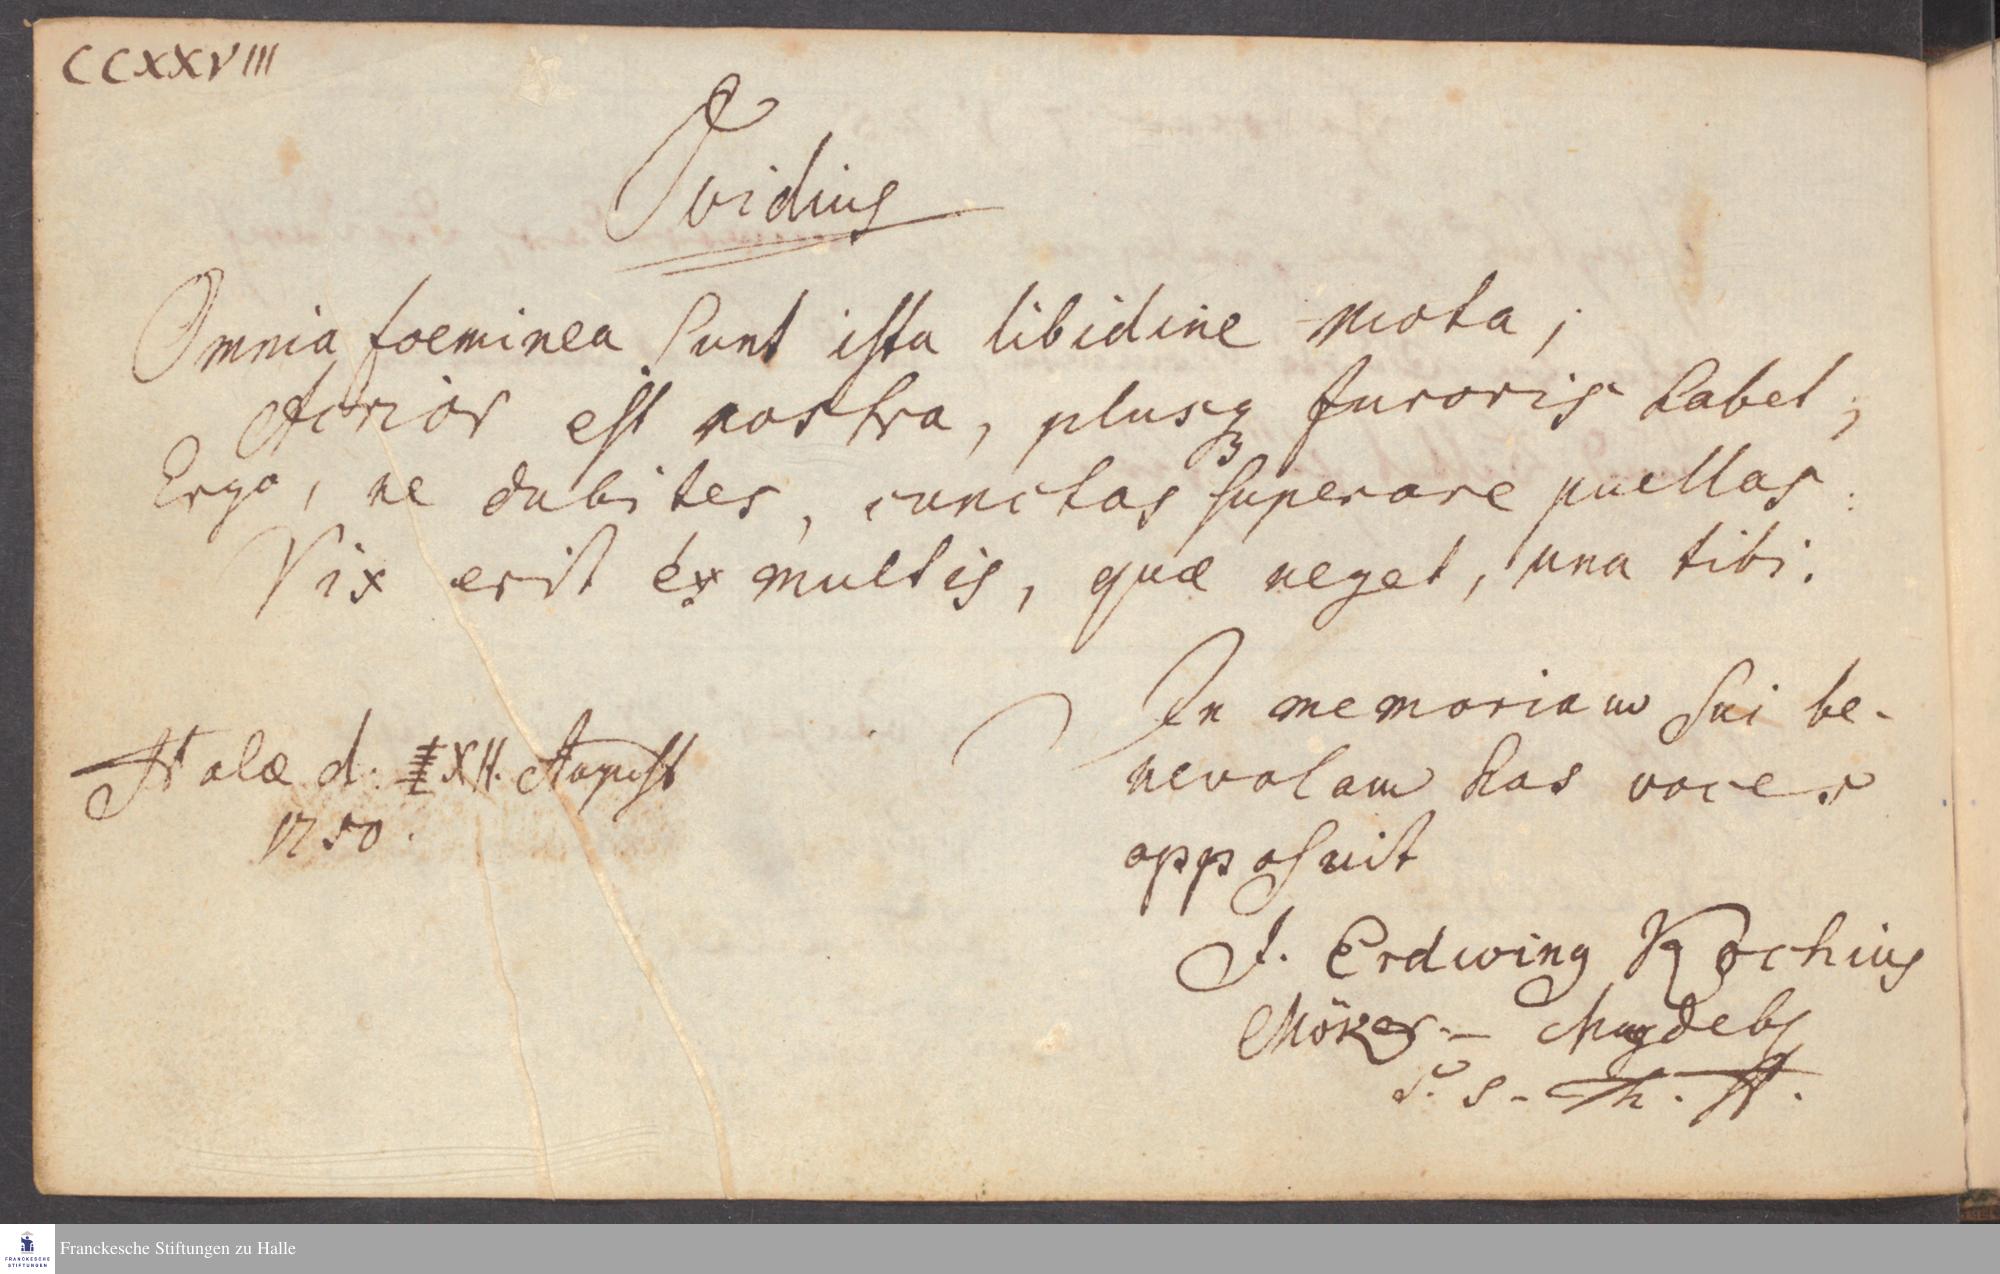 CCXXVIII
Ovidius
Omnia foeminea sunt ista libidine mota;
Acrior est nostra, plusq₃ furoris habet;
Ergo, ne dubites, cunctas superare puellas:
Vix erit ex multis, quæ neget, una tibi.
Halæ d. XII. August
1750.
In memoriam sui be-
nevolam has voces
apposuit
J. Erdwing Kochius
Möker- Magdeb
S. S. Th. St.
FRANCKESCHE
STIFTUNGEN
Franckesche Stiftungen zu Halle